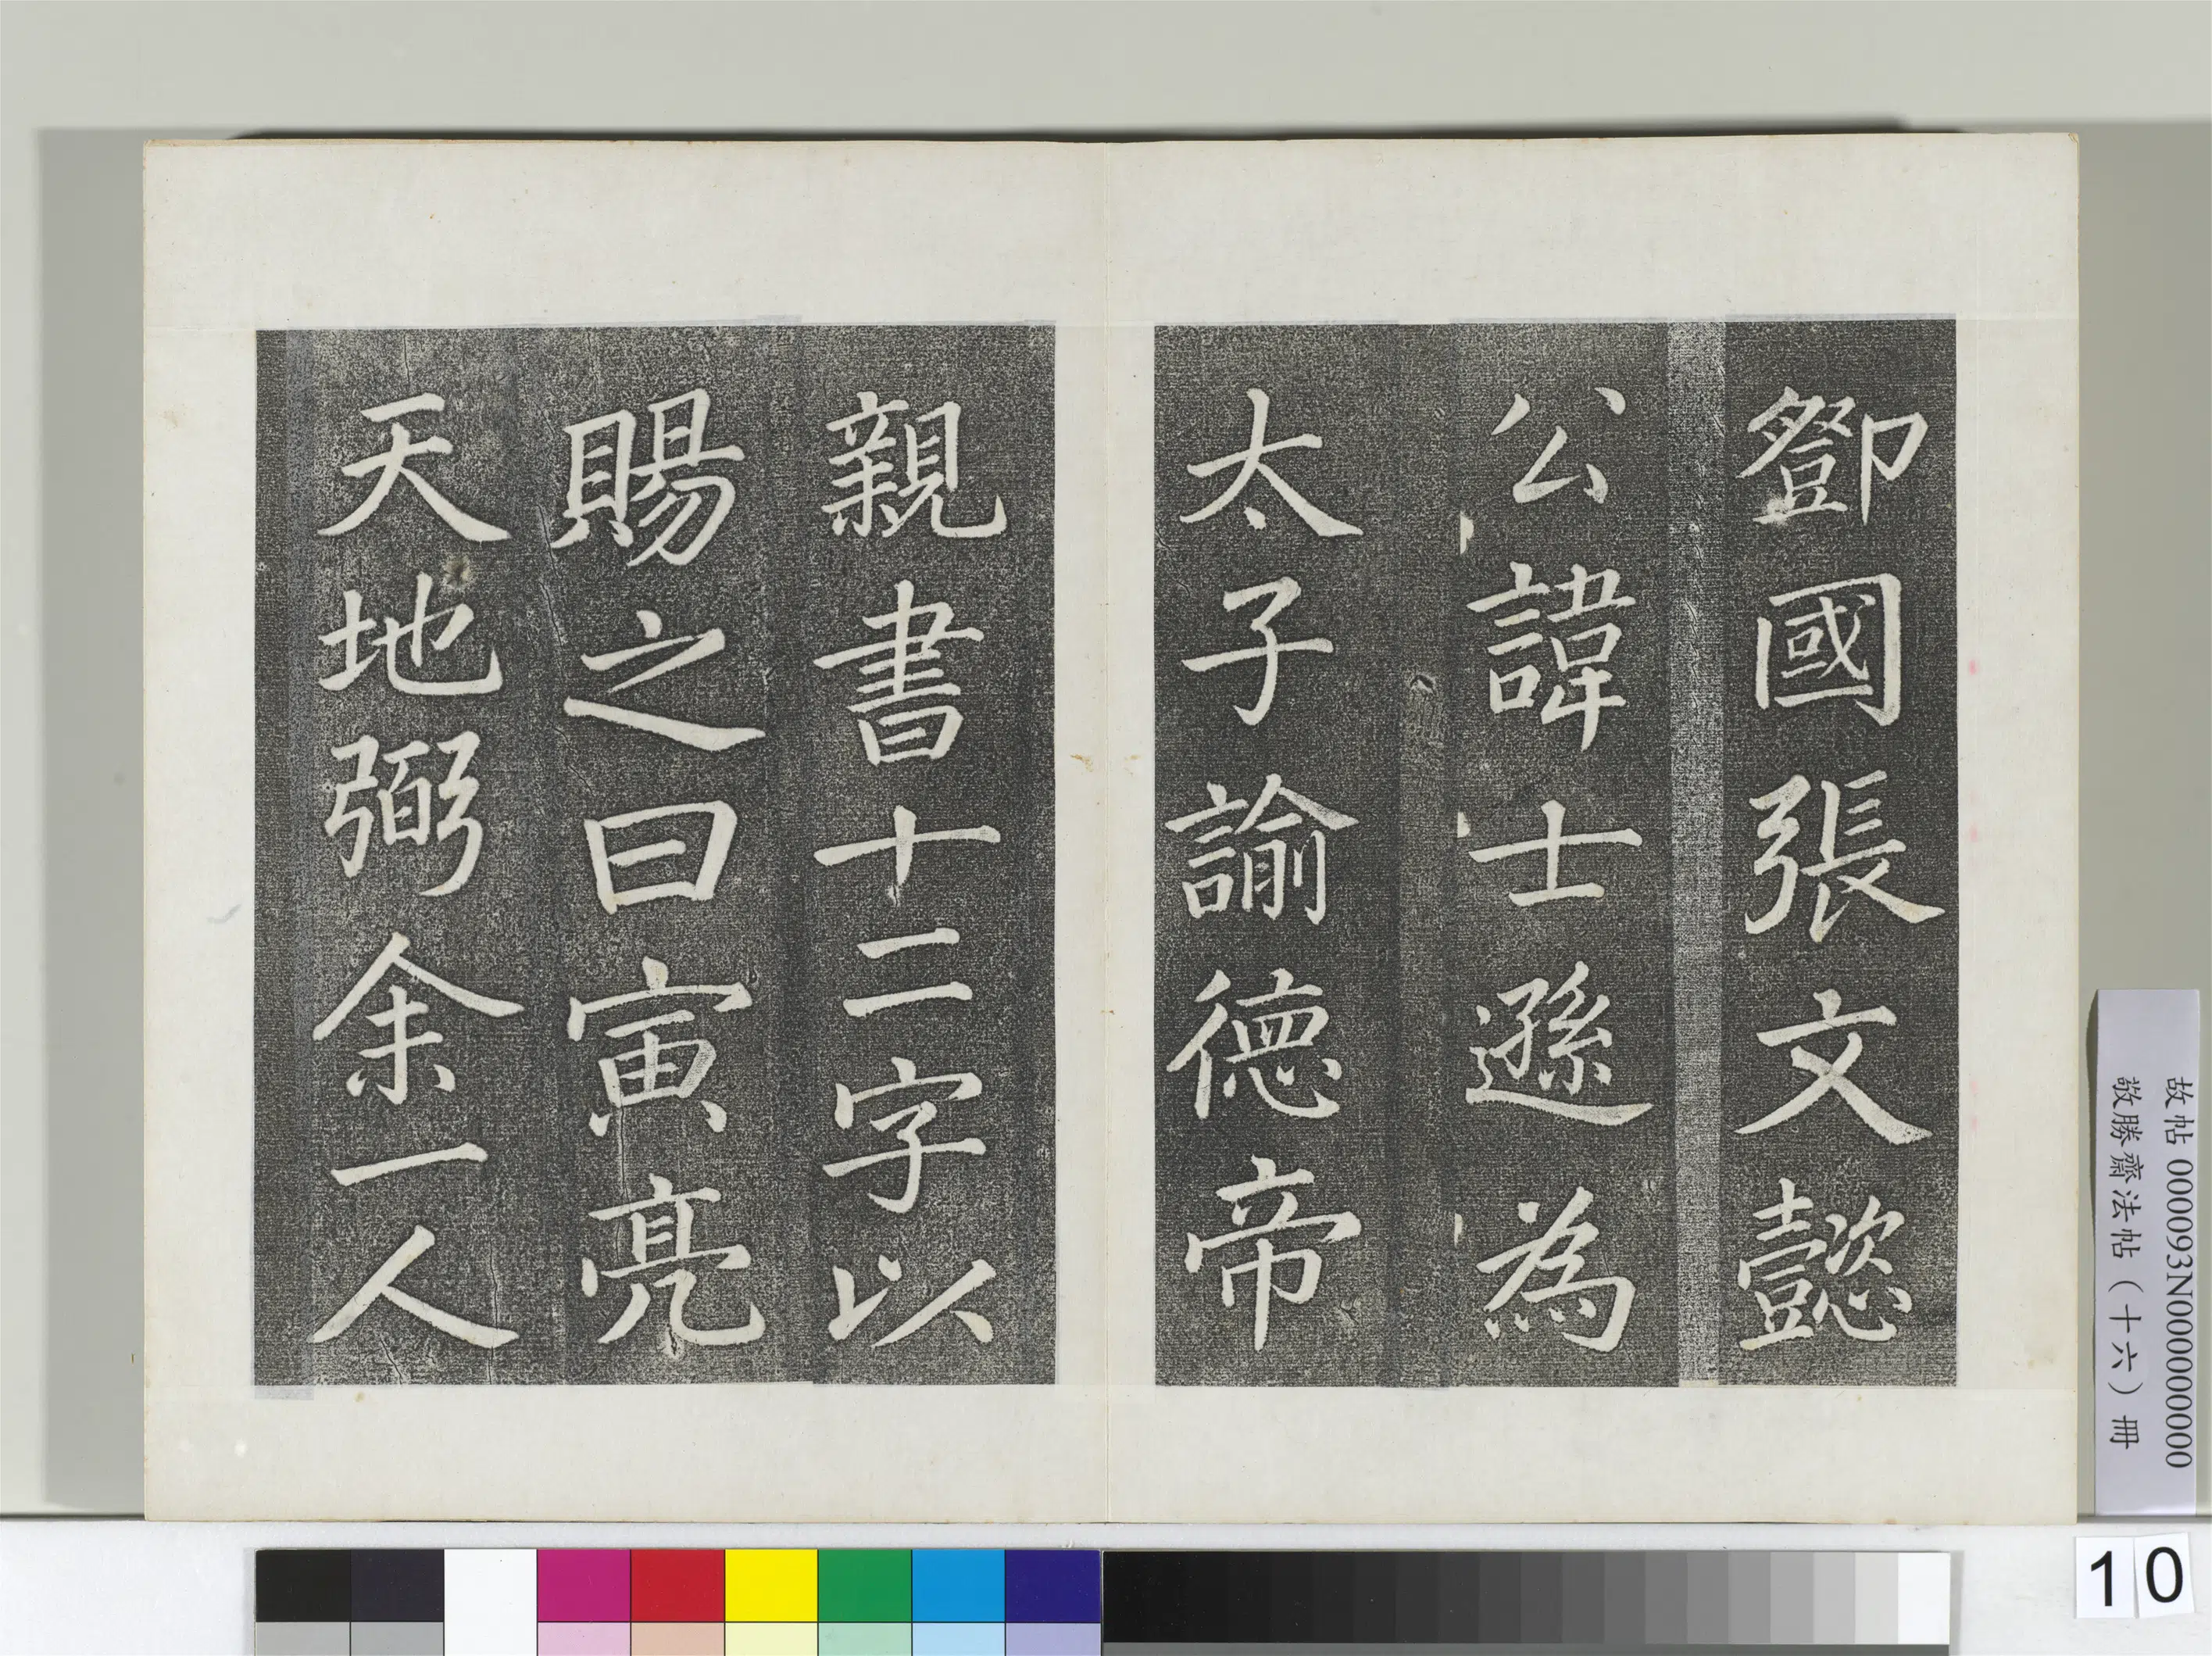 鄧國張文懿
公諱士遜為
太子諭德帝
親書十二字以
賜之曰寅亮
天地弼余一人
故帖 000093N000000000
敬勝齋法帖（十六）冊
10